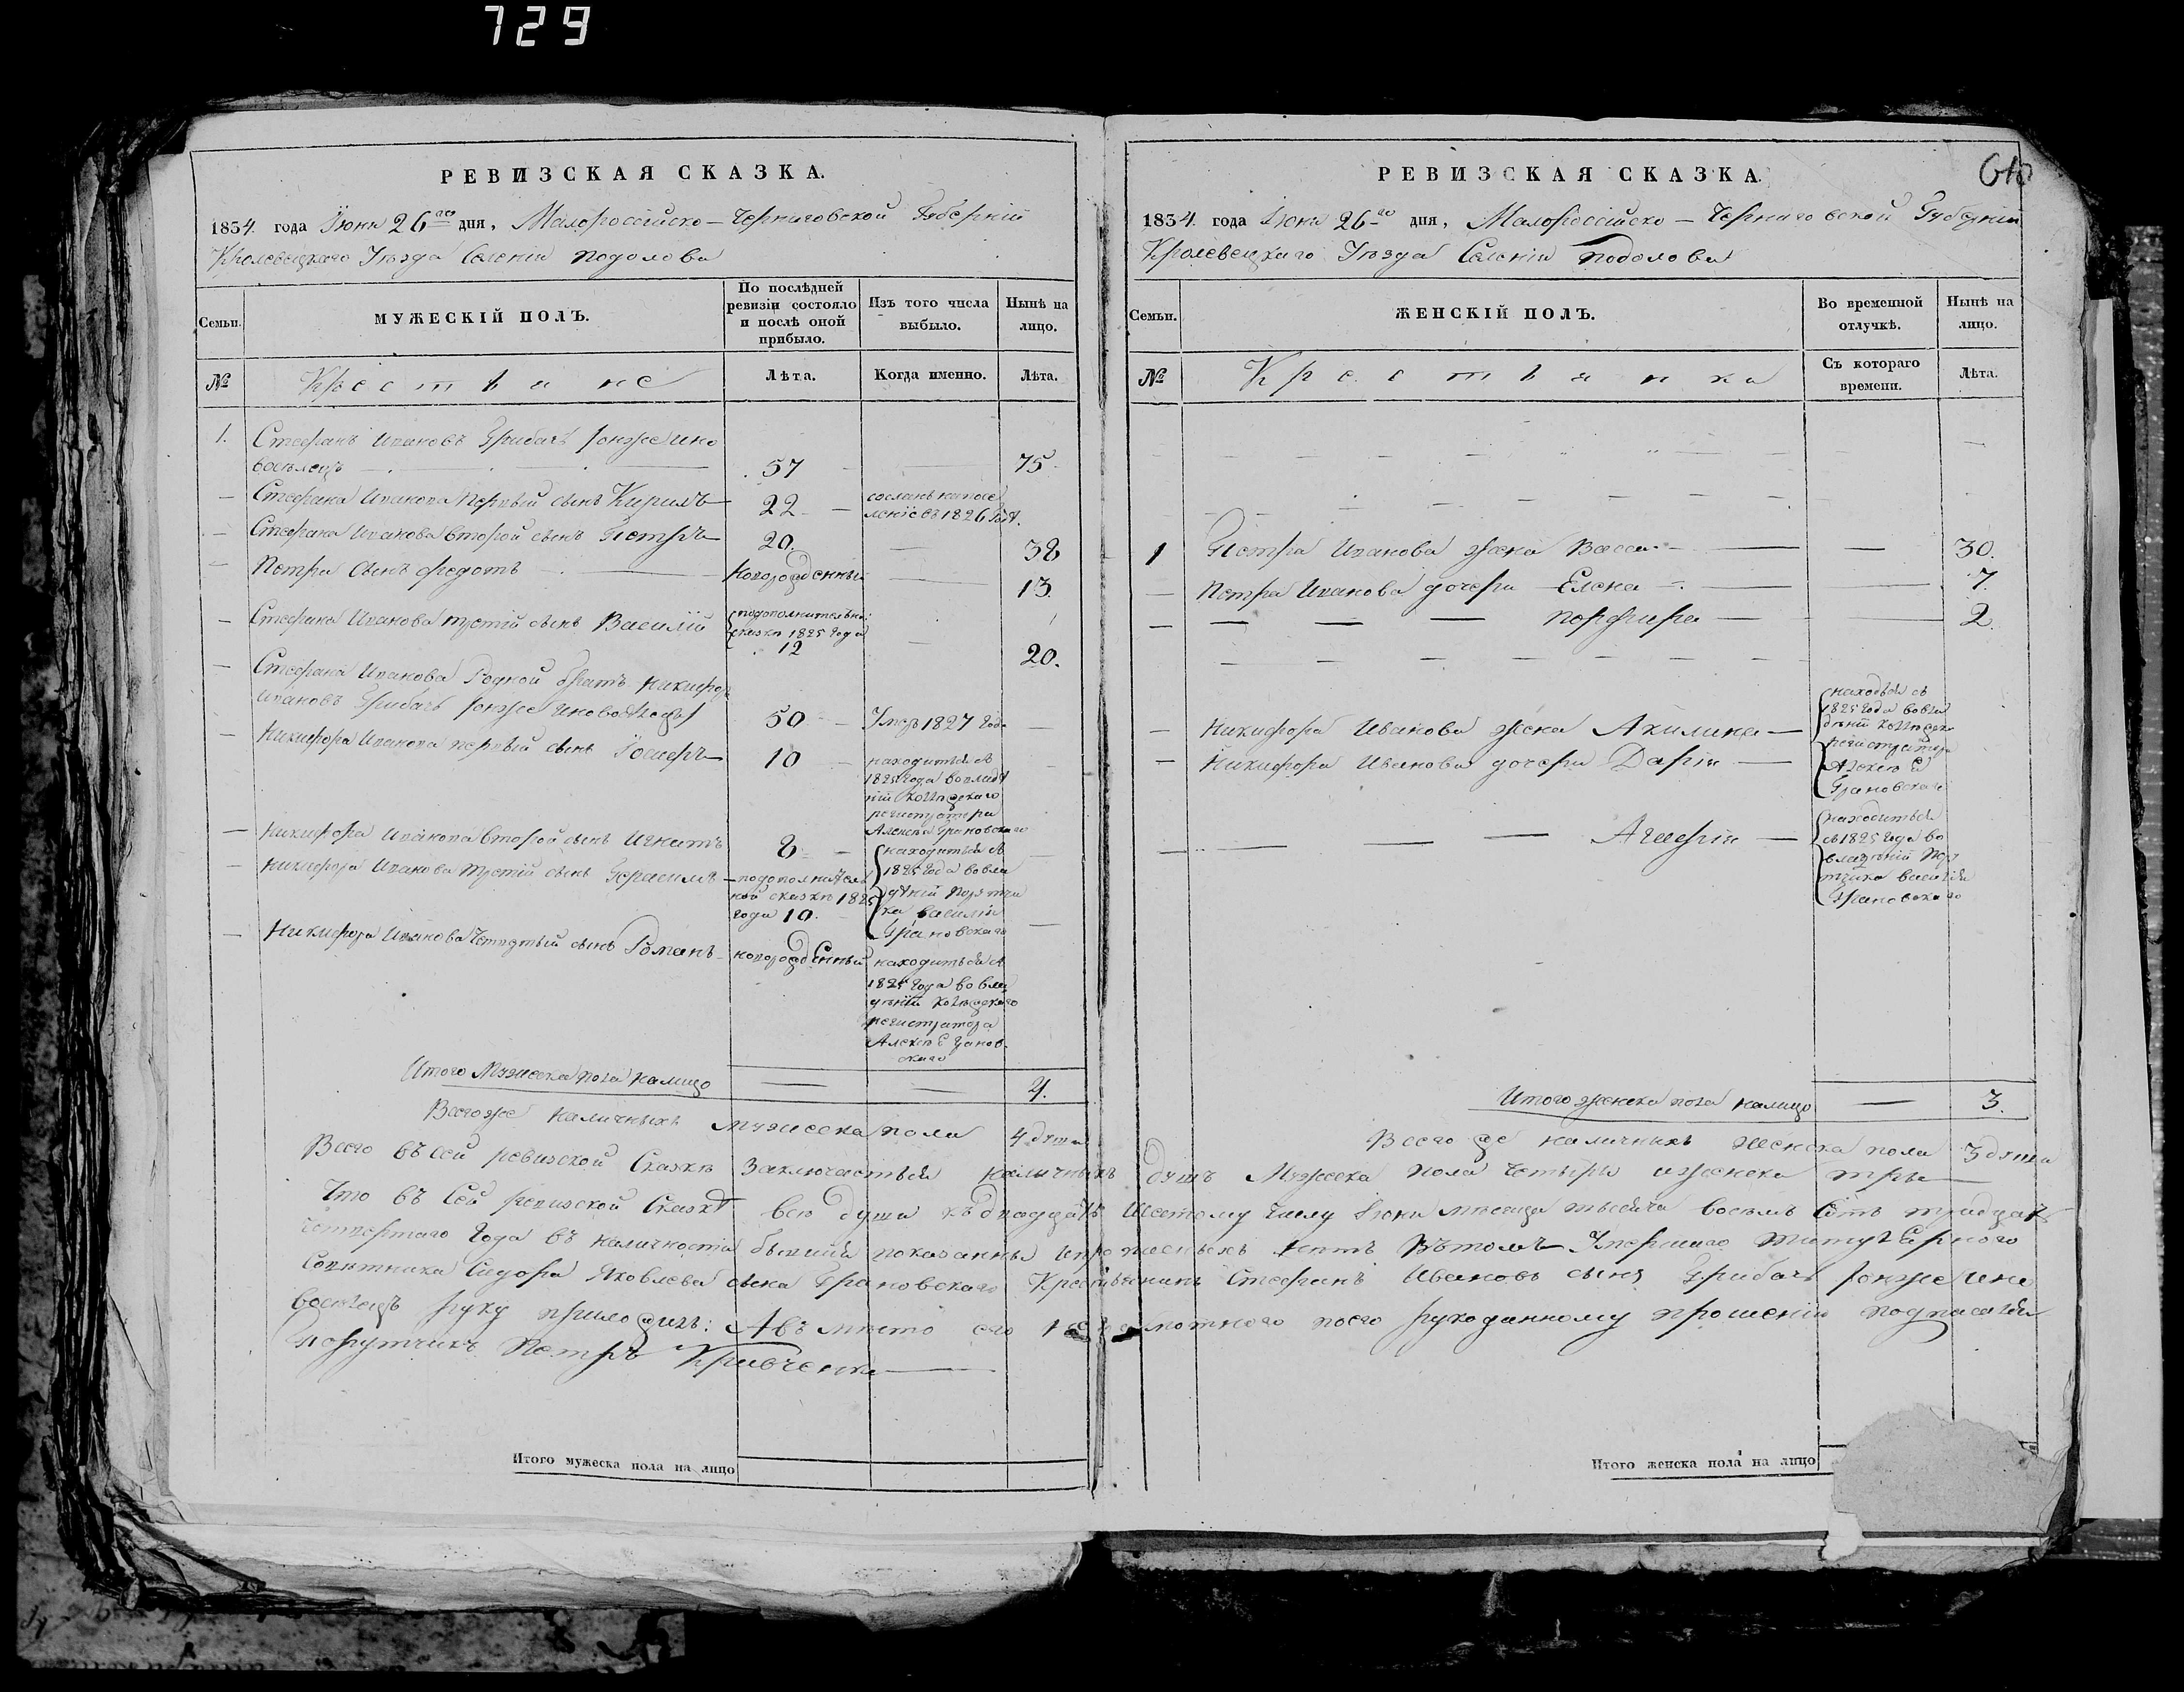 729
РЕВИЗСКАЯ СКАЗКА.
1834. года Іюня 26го дня, Малороссійско-Черниговской Губерніи
Кролевецкаго Уезда Селенія Подолова
Семьи.
МУЖЕСКІЙ ПОЛЪ.
По послѣдней ревизіи состояло и послѣ оной прибыло.
Изъ того числа выбыло.
Нынѣ на лицо.
№
Крестьяне
Лѣта.
Когда именно.
Лѣта.
1. Стефанъ Ивановъ Грибачъ
57 75
Стефана Иванова первый сынъ Кирилъ 22 сосланъ на посе
леніе въ 1826 году.
Стефана Иванова второй сынъ Петръ 20. 38
Петра сынъ Федотъ новорожденный 13
Стефана Иванова третій сынъ Василій
по дополнительной
сказкѣ 1825 года
12 20.
Стефана Иванова родной братъ Никифоръ
Ивановъ Грибачъ 50 Умеръ 1827 года
Никифора Иванова первый сынъ Іосифъ 10 находится съ
1825 года во владѣ
ніи коллежскаго
регистратора
Алексея Грановскаго
Никифора Иванова второй сынъ Игнатъ 8
находится съ
1825 года во вла
дѣніи поручи
ка Василія
Грановскаго
Никифора Иванова третій сынъ Герасимъ
по дополнитель
ной сказкѣ 1825
года 10.
Никифора Иванова четвертый сынъ Романъ новорожденный находится съ
1825 года во вла
дѣніи коллежскаго
регистратора
Алексея Гранов-
скаго
Итого Мужеска пола налицо 4.
Всего же наличныхъ мужеска пола 4 души
РЕВИЗСКАЯ СКАЗКА.
1834. года Іюня 26го дня, Малороссійско-Черниговской Губерніи
Кролевецкаго Уезда Селенія Подолова
Семьи.
ЖЕНСКІЙ ПОЛЪ.
Во временной отлучкѣ.
Нынѣ на лицо.
№
Крестьянки
Съ котораго времени.
Лѣта.
1 Петра Иванова жена Васса 30.
Петра Иванова дочери Елена 7.
Порфира 2.
Никифора Иванова жена Акилина
Никифора Иванова дочери Дарія
находятся съ
1825 года во вла
дѣніи коллежска
регистратора
Алексея
Грановскаго
Агафія
находится
съ 1825 года во
владѣніи пору
чика Василія
Грановскаго
Итого женска пола налицо 3.
Всего же наличныхъ женска пола 3 души
Всего въ сей ревизской сказкѣ заключается наличныхъ душъ мужеска пола четыри и женска три
Что въ сей ревизской сказкѣ все души къ двадцать шестому числу Іюня мѣсяца тысяча восемь сотъ тридцать
четвертаго года въ наличности бывшія показанны и прописныхъ нетъ въ томъ умершаго титулярного
советника Сидора Яковлева сына Грановскаго крестьянинъ Стефанъ Ивановъ сынъ Грибачъ
руку приложилъ: А въ мѣсто его неграмотного по его рукоданному прошенію подписался
Порутчикъ Петръ Кривченко
Итого мужеска пола на лицо
Итого женска пола на лицо